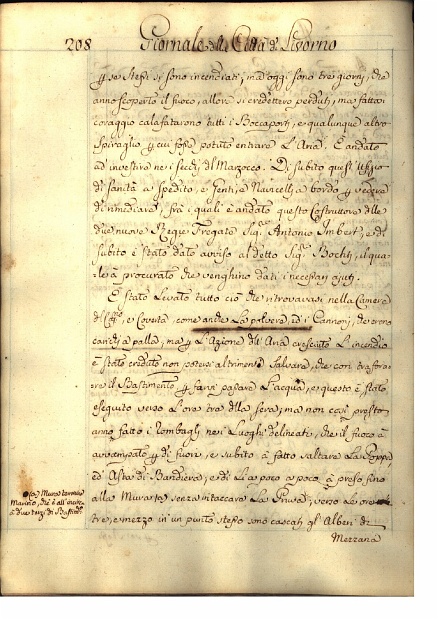 208 Giornale della Città di Livorno
p se stessi si sono incendiati; ma oggi sono tre giorni, che
anno scoperto il fuoco, allora si credettero perduti, ma fatta
coraggio calafatarono tutti i Boccaporti, e qualunque altro
spiraglio p cui fosse potuto entrare L'Aria. È andato
ad investire ne i secchi del Marzocco. Di subito quest'Uffizio
di sanità à spedito, e Genti, e Navicelli a bordo p vedere
di rimediare, frà i quali è andato questo Costruttore delle
due nuove Fregate Sig.r Antonio Imbert, e di
subito è stato dato avviso al detto Sig.r il qua-
le à procurato che venghino dati i necessari ajuti.
È stato Levato tutto ciò che ritrovavasi nella Camera
e Coverta, come anche La polvere, ed i Cannoni, che erono
carichi a palla, ma p L'Azione dell'Aria cresciuto L'incendio
è stato creduto non potersi altrimenti Salvare, che con trafora-
re il Bastimento, e farvi passare L'acqua, e questo è stato
eseguito verso L'ora tra della sera, ma non così presto
anno fatto i Tombagli nei Luoghi delineati, che il fuoco à
avvampato p di fuori, e subito à fatto saltare La Poppa,
ed Asta di Bandiera, e di Lì a poco a poco à preso fino
alla Muratta senza intaccare La Prua; verso Le ore
tre, e mezzo in un punto stesso sono cascati gl'Alberi di
Mezzana